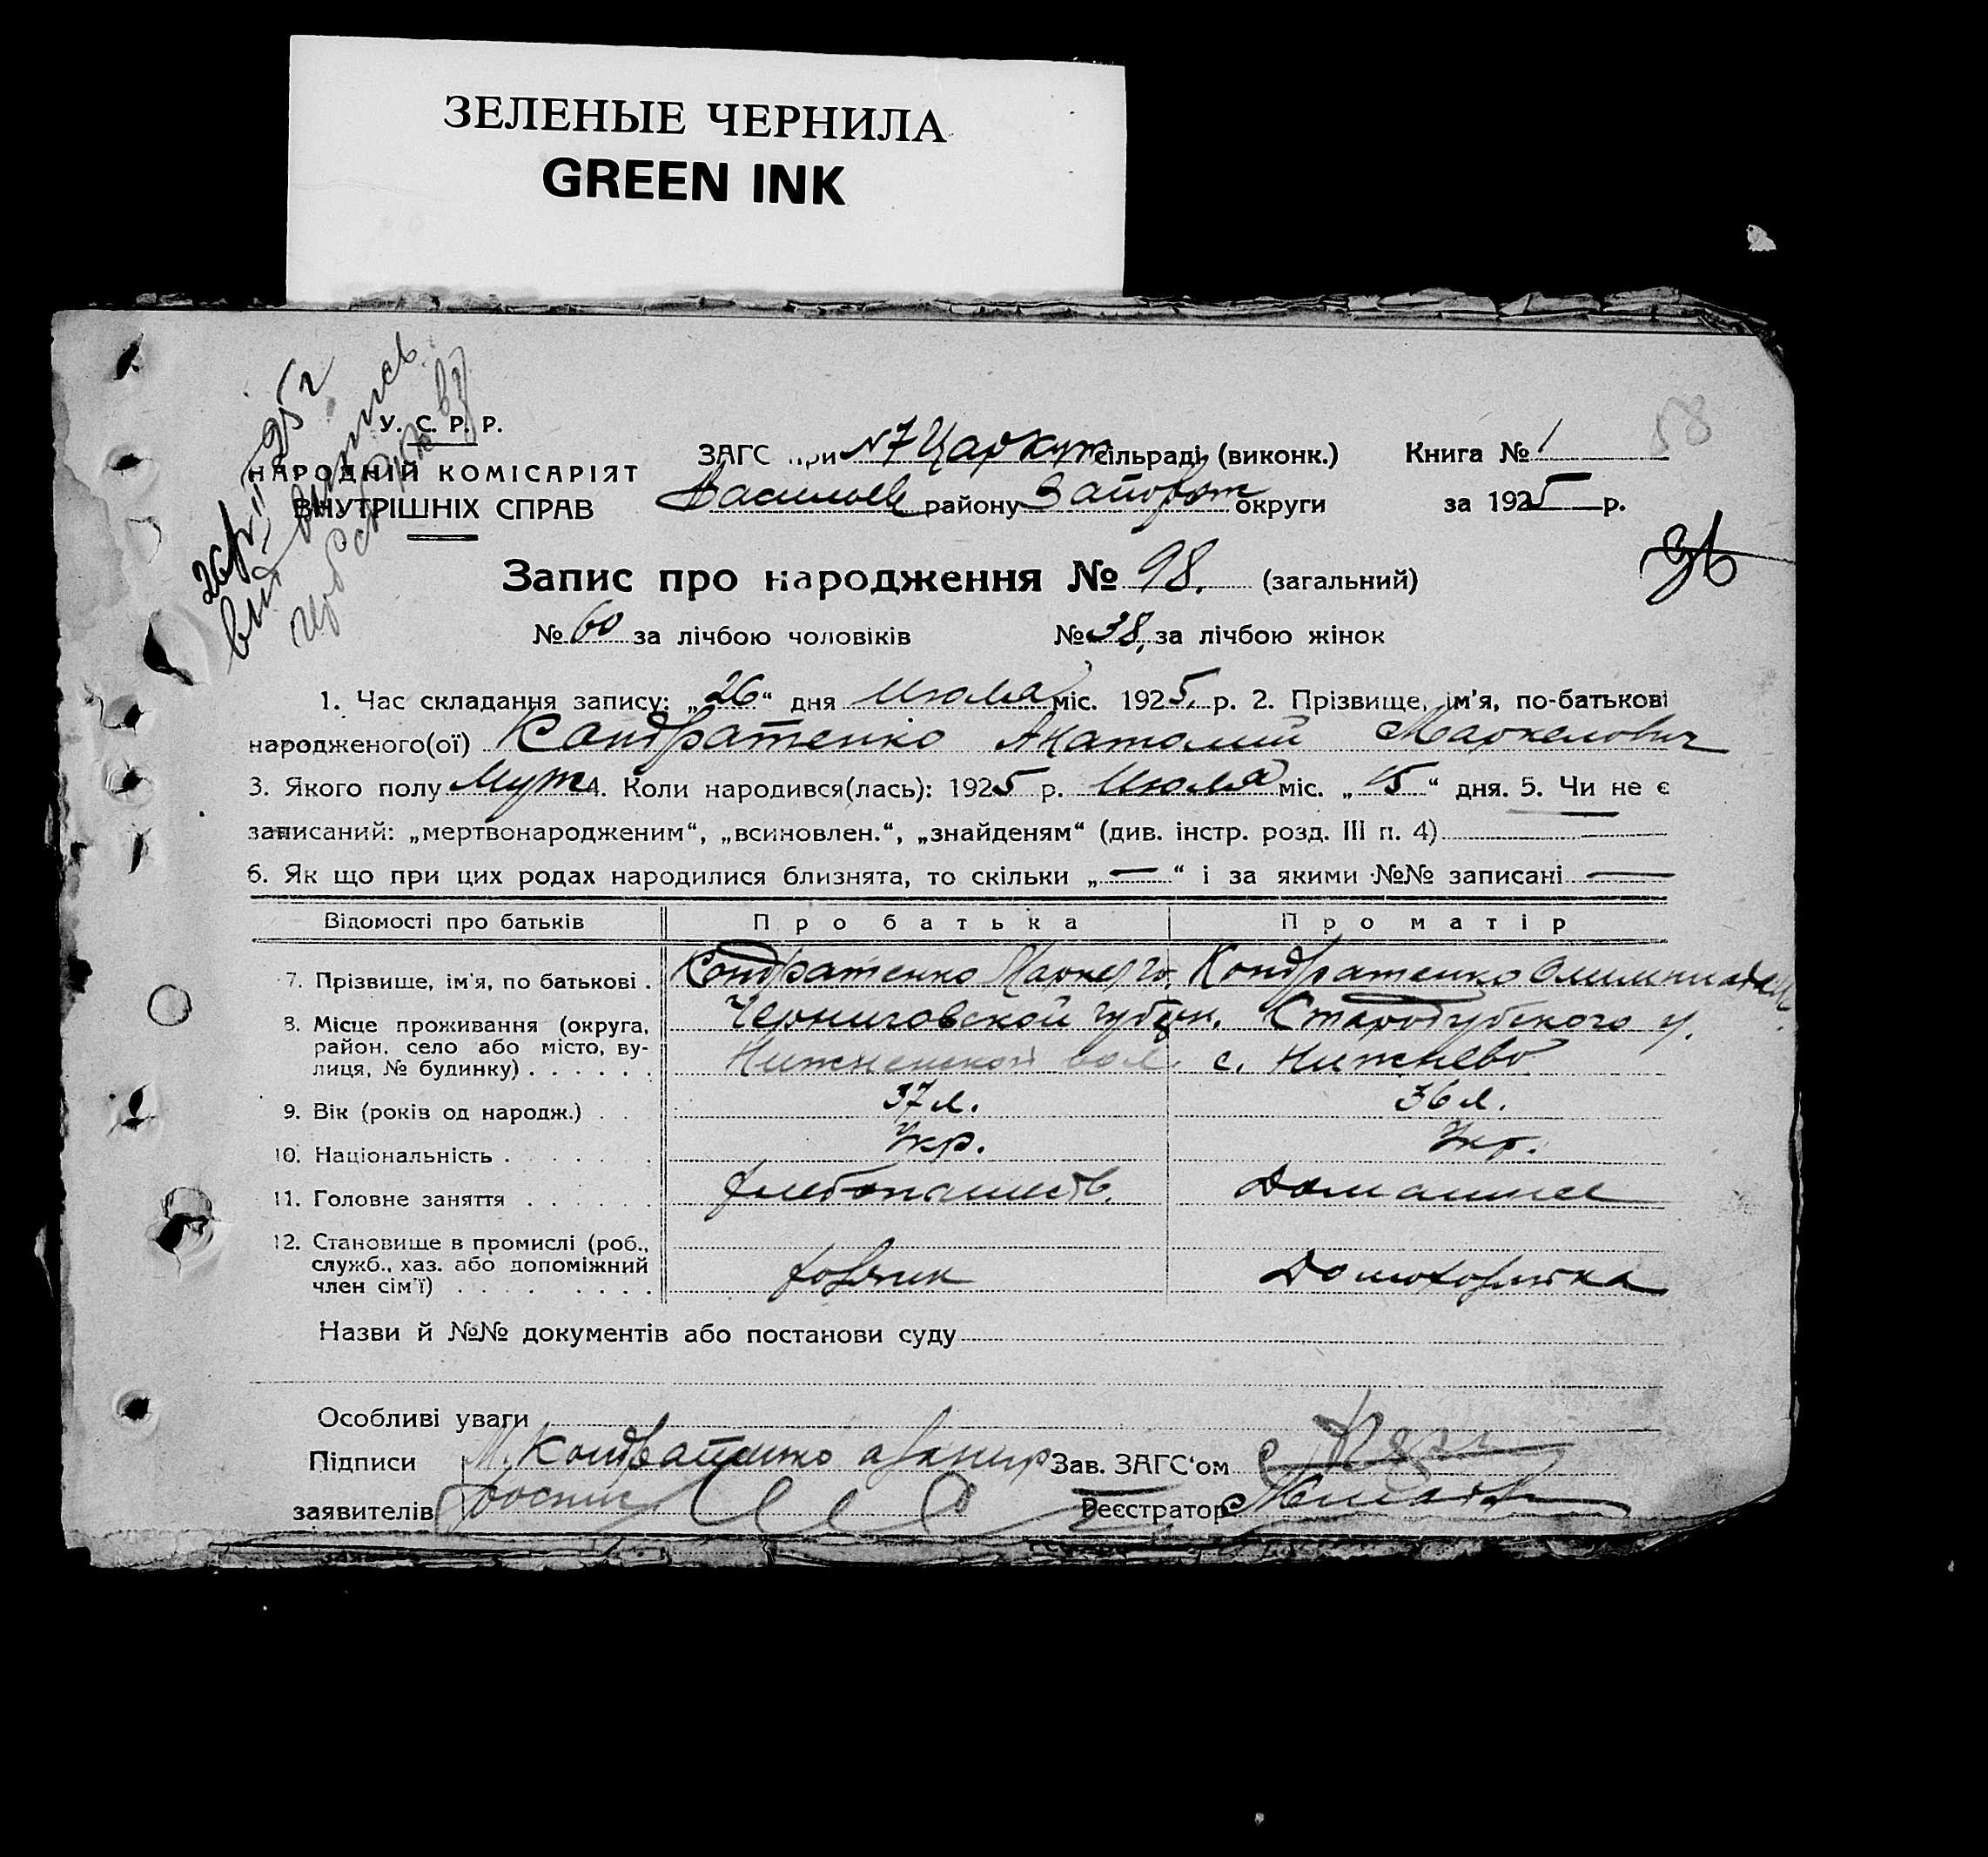 ЗЕЛЕНЫЕ ЧЕРНИЛА
GREEN INK
58
У. С. Р. Р.
НАРОДНІЙ КОМІСАРІЯТ
ВНУТРІШНІХ СПРАВ
ЗАГС при №7 Царкут сільраді (виконк.) Книга № 1
Васильев району Запорож округи за 1925 р.
Запис про народження № 98. (загальний)
№ 60 за лічбою чоловіків № 38, за лічбою жінок
1. Час складання запису: „26“ дня Июля міс. 1925 р. 2. Прізвище, ім’я, по-батькові
народженого(ої) Кондратенко Анатолий Маркелович
3. Якого полу Муж 4. Коли народився(лась): 1925 р. Июля міс. „15“ дня. 5. Чи не є
записаний: „мертвонародженим“, „всиновлен.“, „знайденям“ (див. інстр. розд. III п. 4)
6. Як що при цих родах народилися близнята, то скільки „—“ і за якими №№ записані —
Відомості про батьків Про батька Про матір
7. Прізвише, ім’я, по батькові . Кондратенко Кондратенко Олимпиада
8. Місце проживання (округа, район, село або місто, вулиця, № будинку) Черниговской губерн. Стародубского у.
Нижневской вол. с. Нижнево
9. Вік (років од народж.) 37 л. 36 л.
10. Національність Укр. Укр.
11. Головне заняття Хлебопашеств. Домашнее
12. Становище в промислі (роб., служб., хаз. або допоміжний член сім’ї) Хозяин Домохозяйка
Назви й №№ документів або постанови суду
Особливі уваги
Підписи М. Кондратенко Зав. ЗАГС‘ом
заявителів Реєстратор